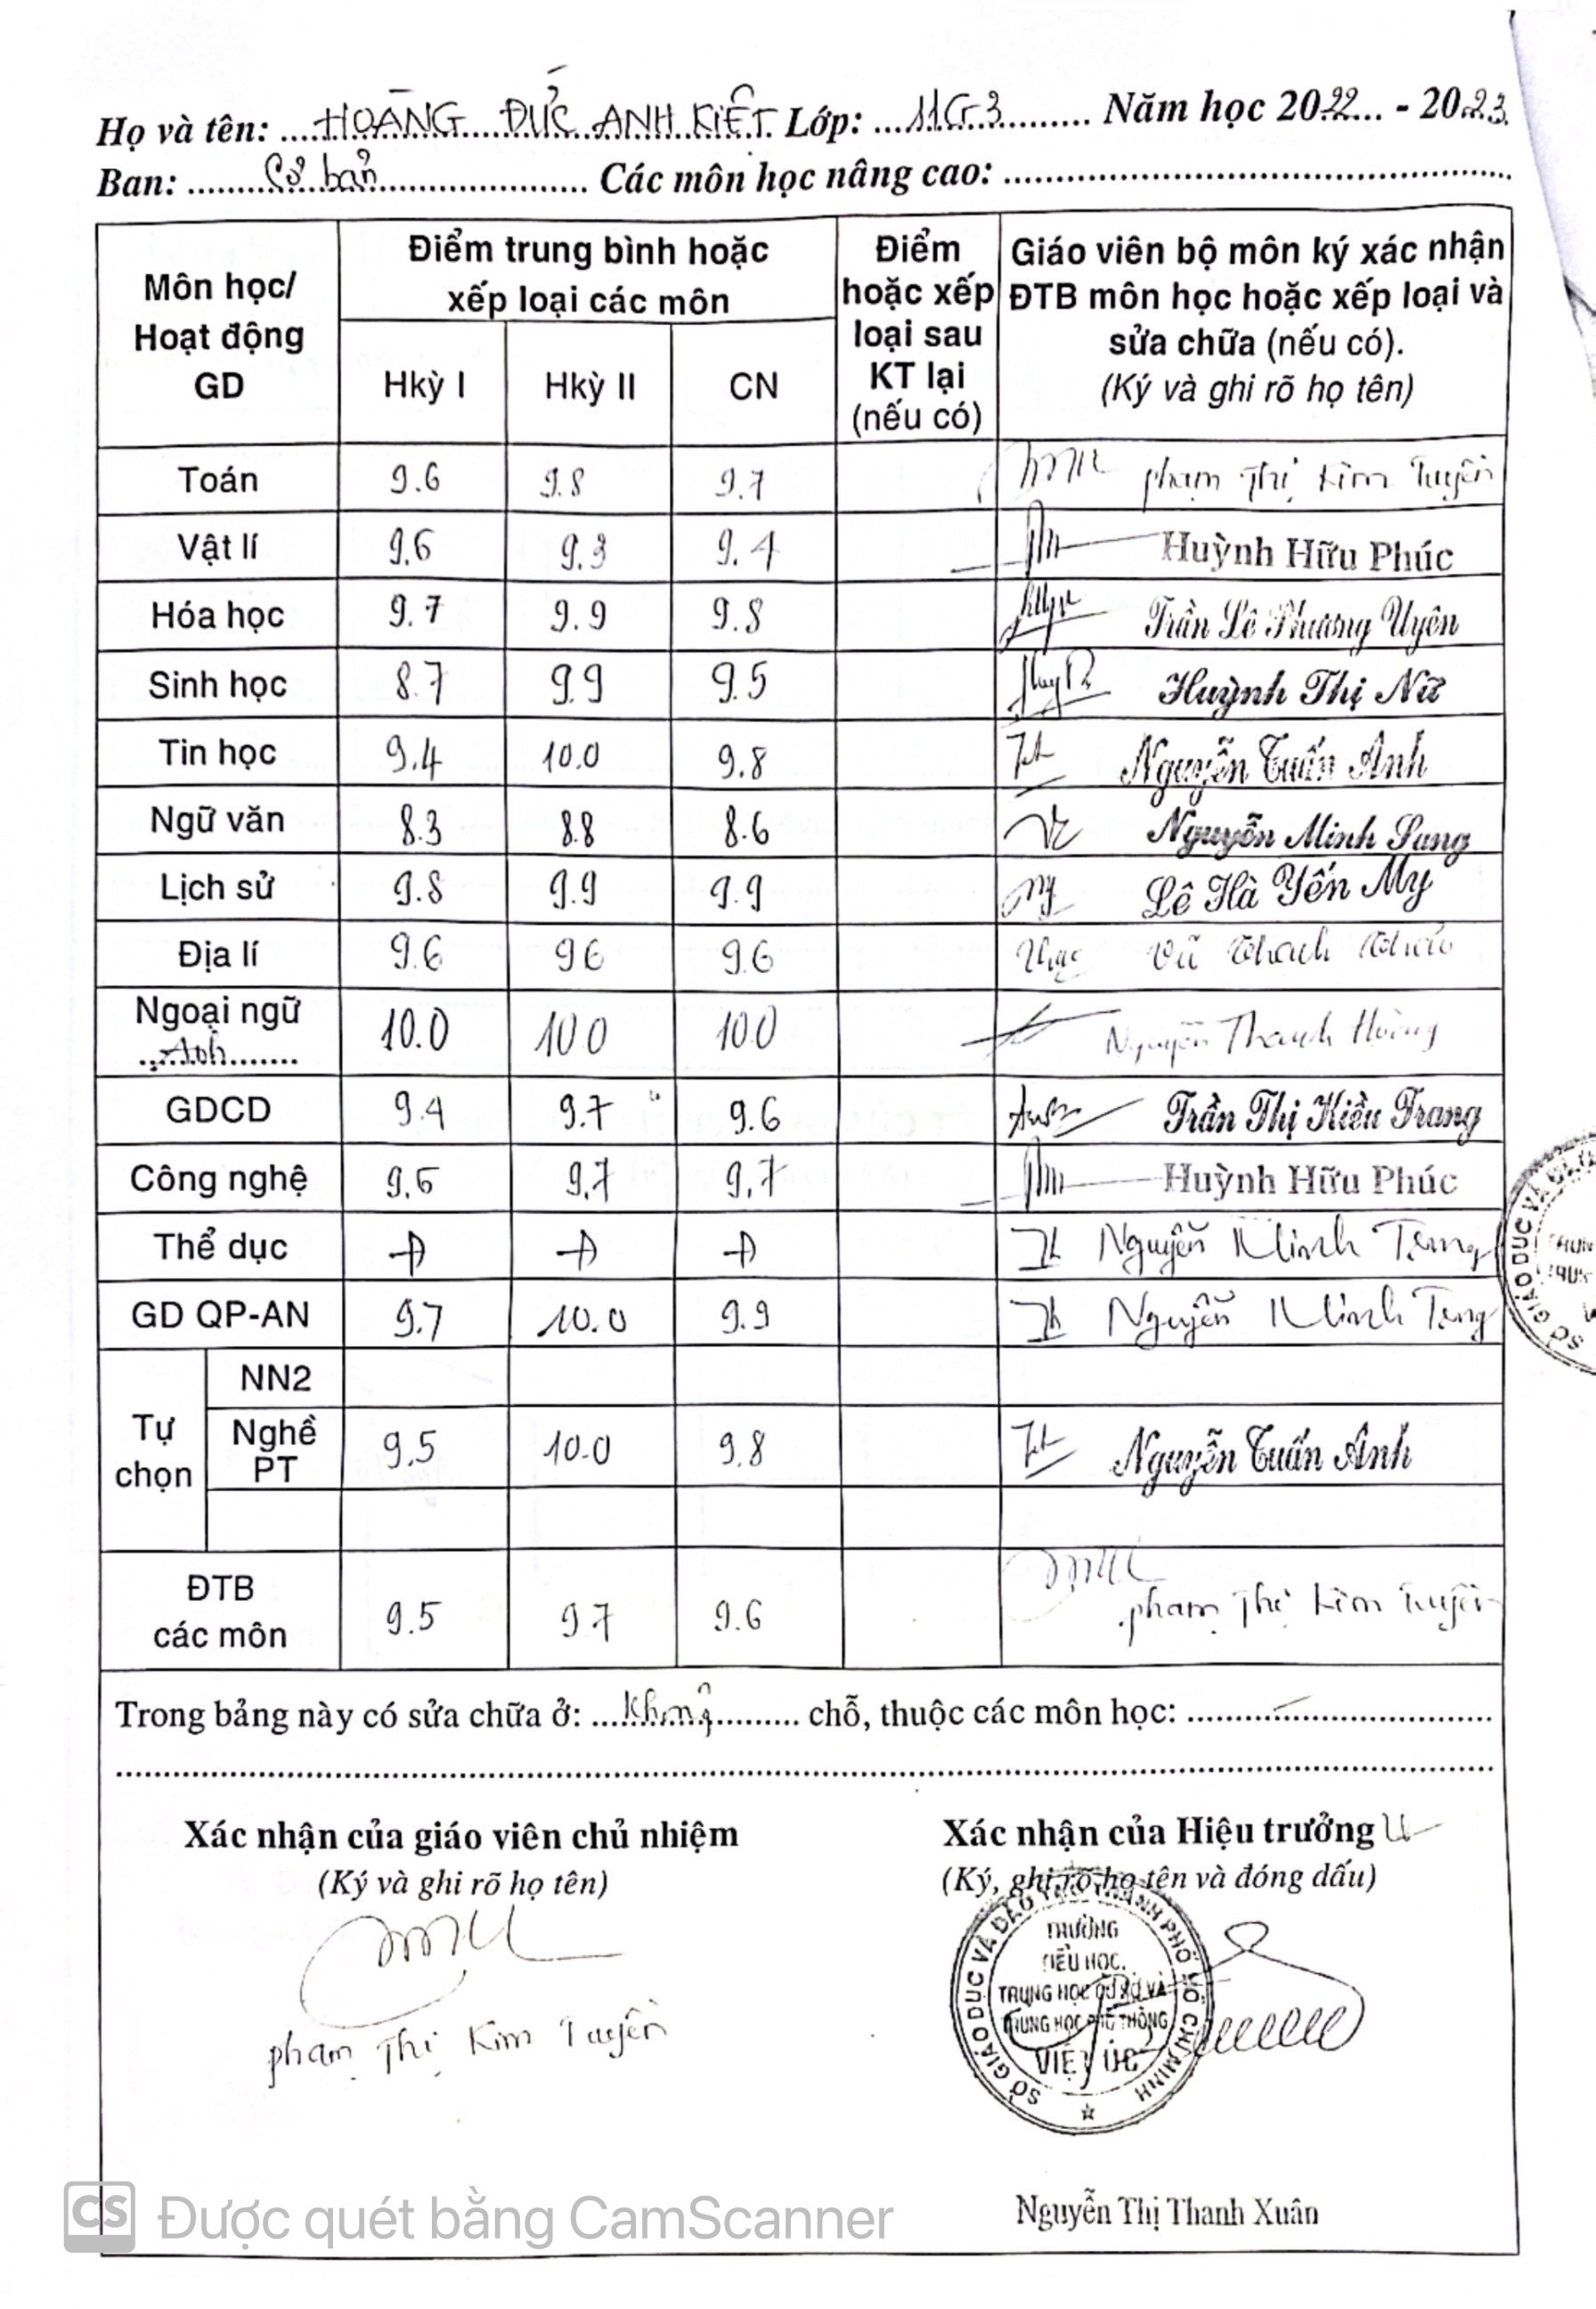 Họ và tên: HOÀNG ĐỨC ANH KIỆT Lớp: 11G3 Năm học 2022 - 2023
Ban: Cơ bản Các môn học nâng cao:
Môn học/ Hoạt động GD
Điểm trung bình hoặc xếp loại các môn
Hkỳ I Hkỳ II CN
Điểm hoặc xếp loại sau KT lại (nếu có)
Giáo viên bộ môn ký xác nhận ĐTB môn học hoặc xếp loại và sửa chữa (nếu có). (Ký và ghi rõ họ tên)
Toán 9.6 9.8 9.7 Phạm Thị Kim Tuyền
Vật lí 9.6 9.3 9.4 Huỳnh Hữu Phúc
Hóa học 9.7 9.9 9.8 Trần Lê Phương Uyên
Sinh học 8.7 9.9 9.5 Huỳnh Thị Nữ
Tin học 9.4 10.0 9.8 Nguyễn Tuấn Anh
Ngữ văn 8.3 8.8 8.6 Nguyễn Minh Sang
Lịch sử 9.8 9.9 9.9 Lê Hà Yến My
Địa lí 9.6 9.6 9.6 Vũ Thanh Thảo
Ngoại ngữ 10.0 10.0 10.0 Nguyễn Thanh Hoàng
Anh
GDCD 9.4 9.7 9.6 Trần Thị Kiều Trang
Công nghệ 9.6 9.7 9.7 Huỳnh Hữu Phúc
Thể dục Đ Đ Đ Nguyễn Minh
GD QP-AN 9.7 10.0 9.9 Nguyễn Minh
Tự chọn
NN2
Nghề PT 9.5 10.0 9.8 Nguyễn Tuấn Anh
ĐTB các môn 9.5 9.7 9.6 Phạm Thị Kim Tuyền
Trong bảng này có sửa chữa ở: Không chỗ, thuộc các môn học:
Xác nhận của giáo viên chủ nhiệm
(Ký và ghi rõ họ tên)
Phạm Thị Kim Tuyền
Xác nhận của Hiệu trưởng
(Ký, ghi rõ họ tên và đóng dấu)
SỞ GIÁO DỤC VÀ ĐÀO TẠO THÀNH PHỐ HỒ CHÍ MINH
TRƯỜNG
TIỂU HỌC,
TRUNG HỌC CƠ SỞ VÀ
TRUNG HỌC PHỔ THÔNG
VIỆT ÚC
Nguyễn Thị Thanh Xuân
SỞ GIÁO DỤC VÀ
CS Được quét bằng CamScanner